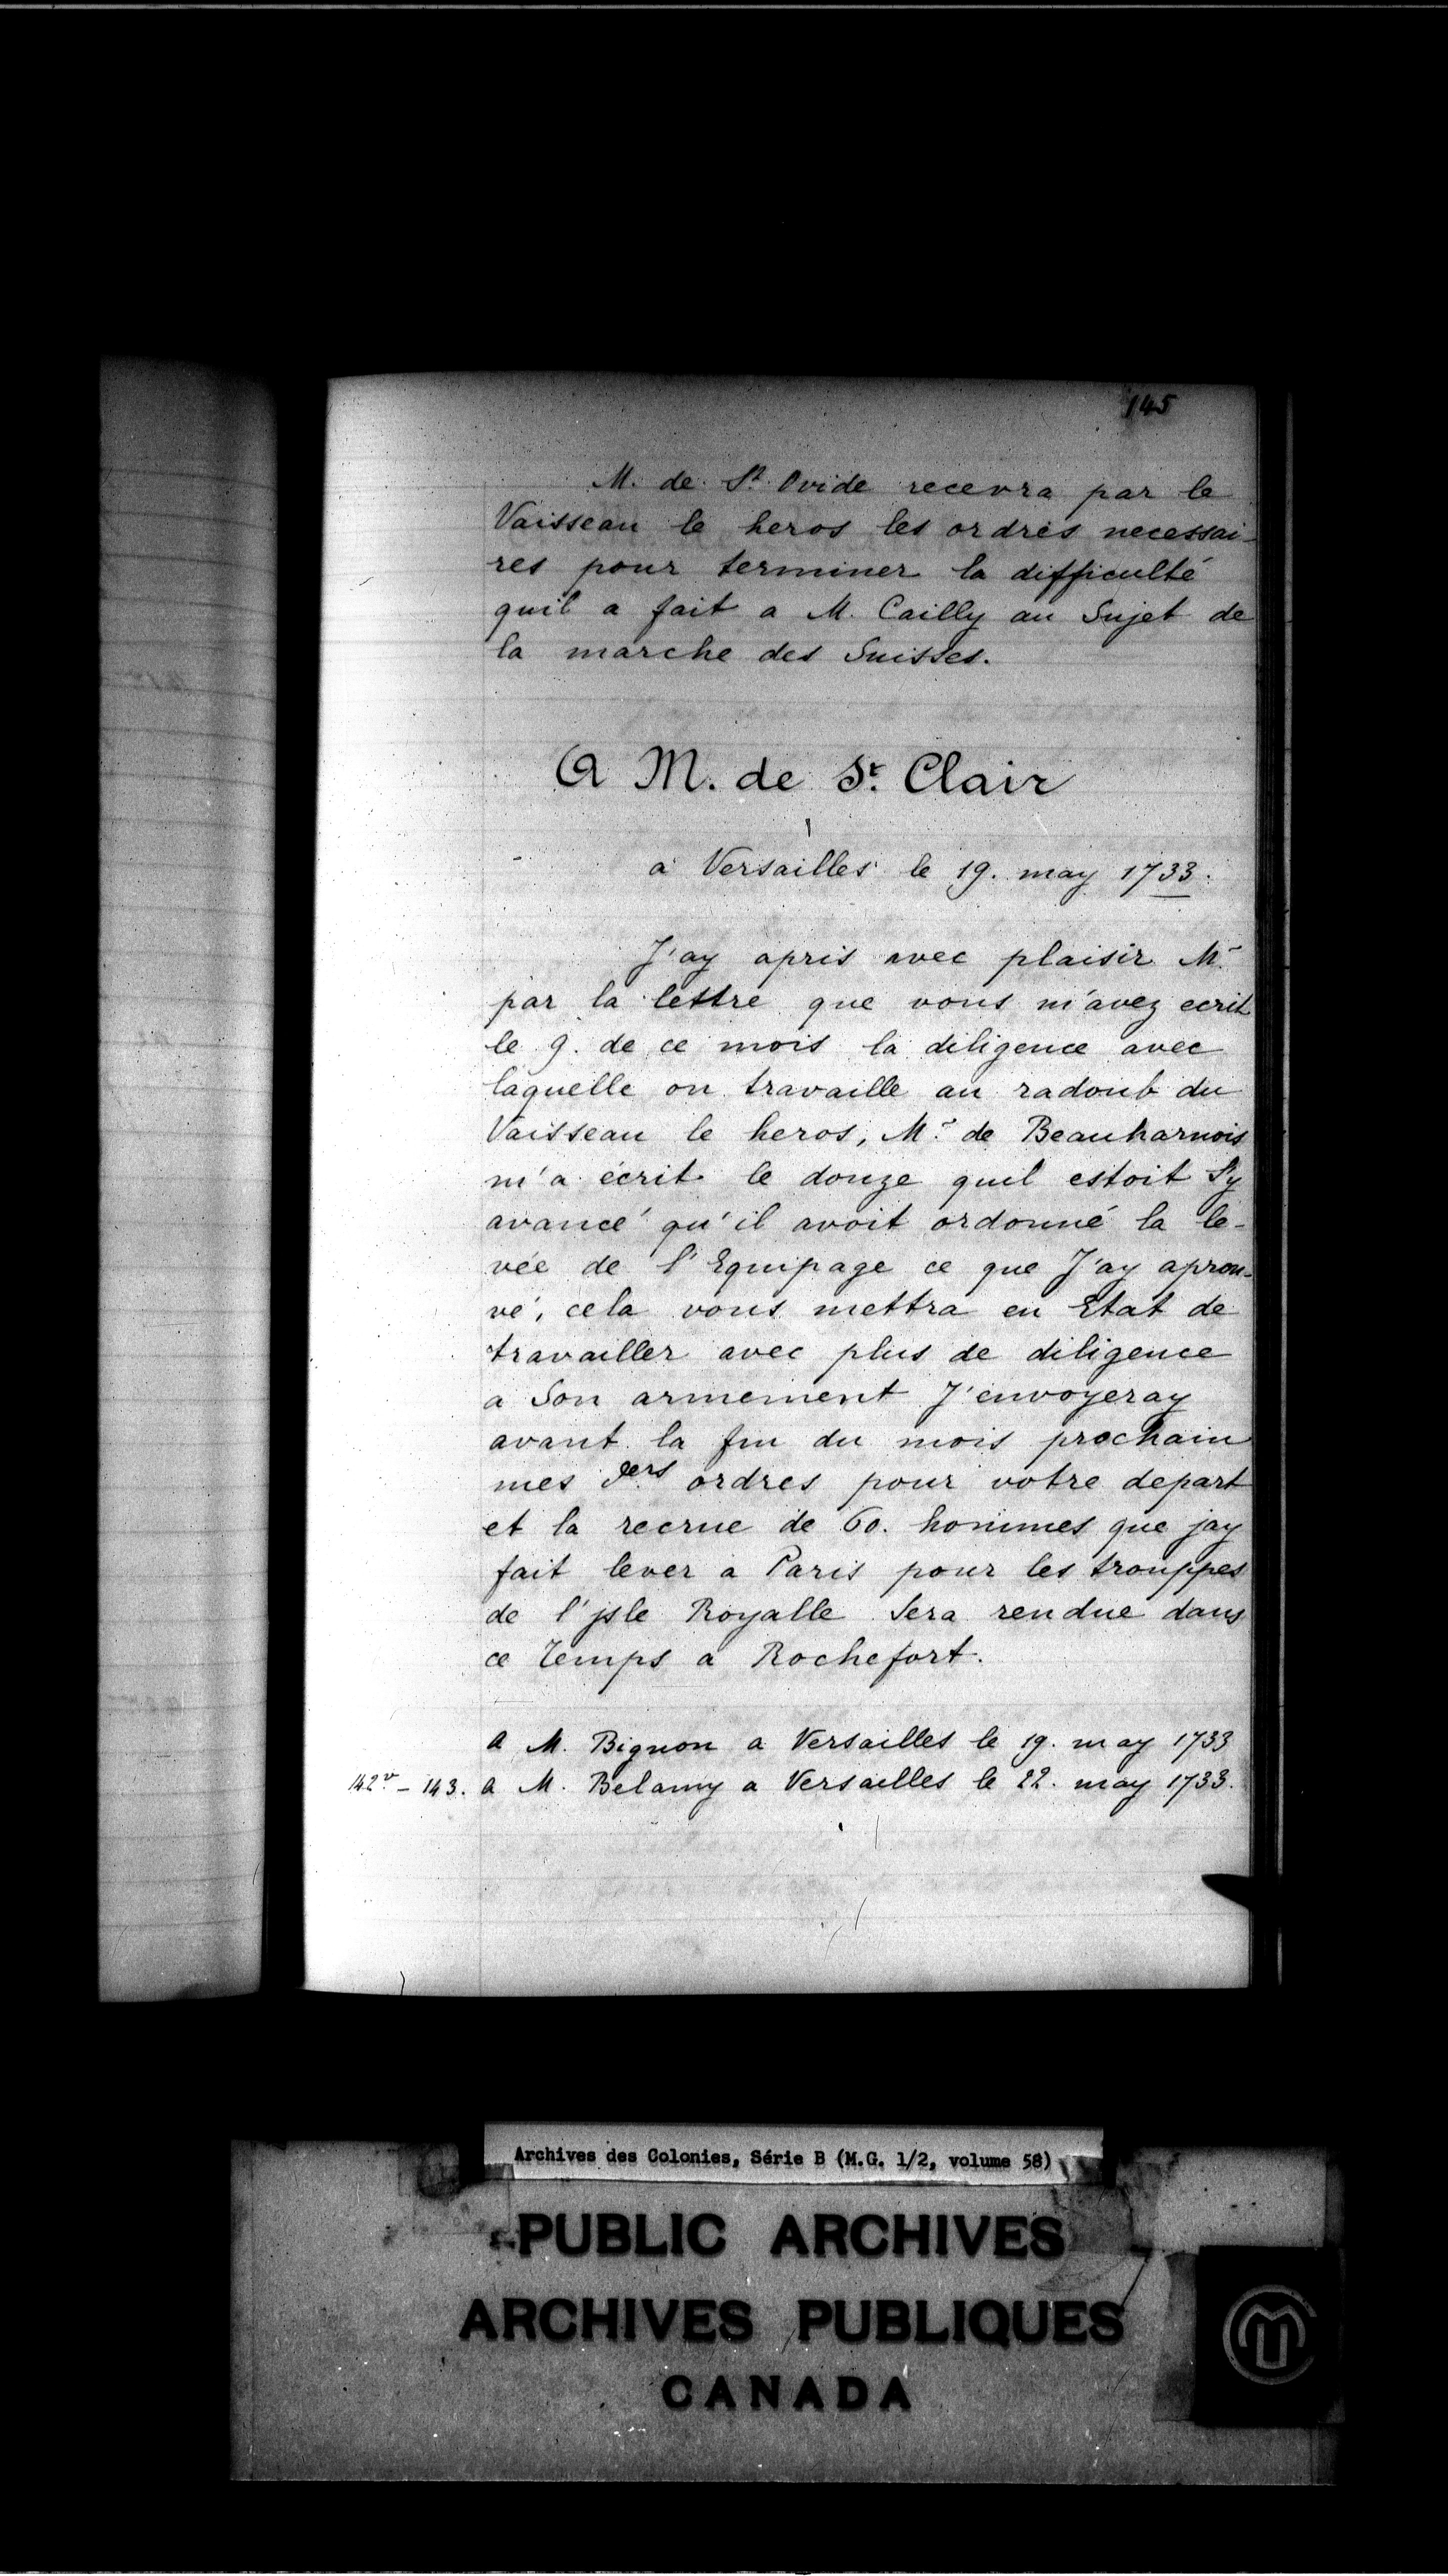 145
M. de St Ovide recevra par le
Vaisseau le heros les ordres necessai-
res pour terminer la difficulté
quil a fait a M. Cailly au Sujet de
la marche des Suisses.
A M. de St. Clair
a Versailles le 19. may 1733.
J'ay apris avec plaisir Mr
par la lettre que vous m'avez ecrit
le 9. de ce mois la diligence avec
laquelle on travaille au radoub du
Vaisseau le heros, Mr de Beauharnois
m'a écrit le douze quil estoit Sy
avancé qu'il avoit ordonné la le-
vée de l'Equipage ce que J'ay aprou-
vé, cela vous mettra en Etat de
travailler avec plus de diligence
a Son armement J'envoyeray
avant la fin du mois prochain
mes ders ordres pour votre depart
et la recrue de 60. hommes que jay
fait lever a Paris pour les trouppes
de l'jsle Royalle Sera rendue dans
ce Temps a Rochefort.
A M. Bignon a Versailles le 19. may 1733
142v - 143. A M. Belamy a Versailles le 22. may 1733.
Archives des Colonies, Série B (M.G. 1/2, volume 58)
PUBLIC ARCHIVES
ARCHIVES PUBLIQUES
CANADA